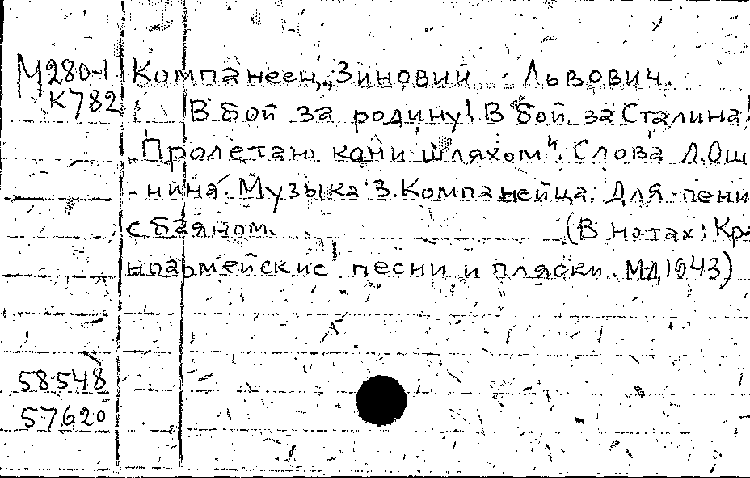 М280-1 Компанеец, Зиновий Львович.
К782 В бой за родину! В бой за Сталина!
"Пролетаю кони шляхом". Слова Л.Ош
-нина. Музыка З.Компанейца. Для пени
с баяном. (В нотах: Кра
ноармейские песни и пляски. М.Л 1943)
58548
57620